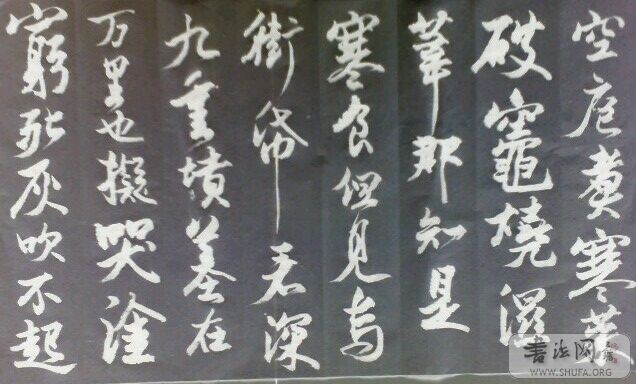 空庖煮寒菜
破竈燒濕
葦那知是
寒食但見烏
銜帋君門深
九重墳墓在
万里也擬哭塗
窮死灰吹不起
書法网
WWW.SHUFA.ORG